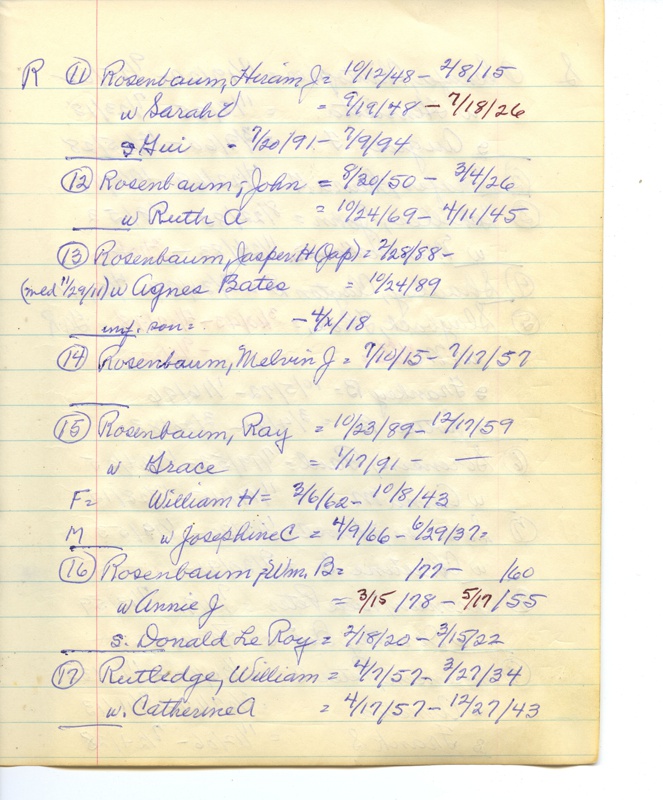 R (11) Rosenbaum, Hiram J = 10/12/48 - 2/8/15
w Sarah E = 9/19/48 - 7/18/26
s Gui - 7/20/91 - 7/9/94
(12) Rosenbaum, John = 8/20/50 - 3/4/26
w Ruth A = 10/24/69 - 4/11/45
(13) Rosenbaum, Jasper H (Jap) = 2/28/88 -
(med 11/29/11) w Agnes Bates = 10/24/89
inf. son = - 4/x/18
(14) Rosenbaum, Melvin J = 7/10/15 - 7/17/57
(15) Rosenbaum, Ray = 10/23/89 - 12/17/59
w Grace = 1/17/91 - —
F = William H = 3/6/62 - 10/8/43
M w Josephine C = 4/9/66 - 6/29/37 =
(16) Rosenbaum, Wm. B = /77 - /60
w Annie J = 3/15/78 - 5/17/55
s. Donald Le Roy = 2/18/20 - 3/15/22
(17) Rutledge, William = 4/7/57 - 3/27/34
w. Catherine A = 4/17/57 - 12/27/43